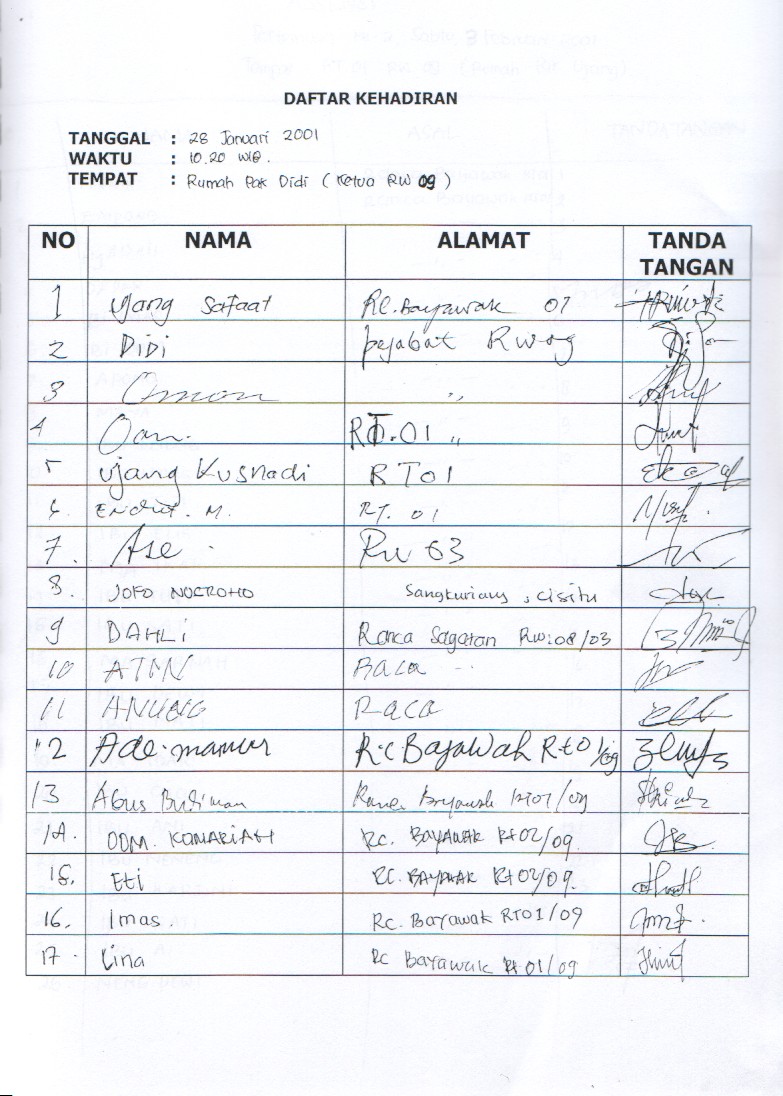 DAFTAR KEHADIRAN
TANGGAL : 28 Januari 2001
WAKTU : 10.20 WIB.
TEMPAT : Rumah Pak Didi (Ketua RW 09)
NO NAMA ALAMAT TANDA TANGAN
1 Ujang Safaat Rc. Bayawak 01
2 DiDi pejabat RW 09
3 Omon ,,
4 Oan. RT.01 ,,
5 Ujang Kusnadi RT01
6. M. RT. 01
7. Ase RW 03
8. JOFO NUGROHO Sangkuriang, cisitu
9 DAHLI Ranca Sagatan RW:08/03
10 RACA
11 ANUNG RACA
12 Ade.mamur R.C Bayawak Rt01/09
13 Agus Budiman Ranca Bayawak Rt01/09
14. ODM. KOMARIAH RC. BAYAWAK Rt02/09.
15. Eti RC. BAYAWAK Rt02/09.
16. Imas. Rc. Bayawak RT01/09
17. Lina Rc Bayawak Rt01/09